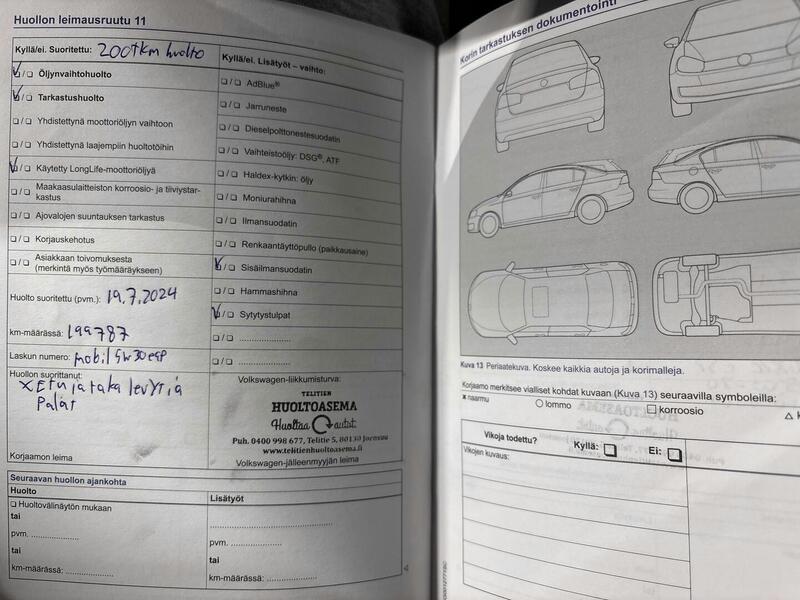 Huollon leimausruutu 11
Kyllä/ei. Suoritettu: 200tkm huolto
☑/☐ Öljynvaihtohuolto
☑/☐ Tarkastushuolto
☐/☐ Yhdistettynä moottoriöljyn vaihtoon
☐/☐ Yhdistettynä laajempiin huoltotöihin
☑/☐ Käytetty LongLife-moottoriöljyä
☐/☐ Maakaasulaitteiston korroosio- ja tiiviystar-
kastus
☐/☐ Ajovalojen suuntauksen tarkastus
☐/☐ Korjauskehotus
☐/☐ Asiakkaan toivomuksesta
(merkintä myös työmääräykseen)
Huolto suoritettu (pvm.): 19.7.2024
km-määrässä: 199787
Laskun numero: mobil 5w30 esp
Huollon suorittanut:
X Etu ja taka levyt ja
Palat
Korjaamon leima
Kyllä/ei. Lisätyöt – vaihto:
☐/☐ AdBlue®
☐/☐ Jarruneste
☐/☐ Dieselpolttonestesuodatin
☐/☐ Vaihteistoöljy: DSG®, ATF
☐/☐ Haldex-kytkin: öljy
☐/☐ Moniurahihna
☐/☐ Ilmansuodatin
☐/☐ Renkaantäyttöpullo (paikkausaine)
☑/☐ Sisäilmansuodatin
☐/☐ Hammashihna
☑/☐ Sytytystulpat
☐/☐ ....................
☐/☐ ....................
Volkswagen-liikkumisturva:
TELITIEN
HUOLTOASEMA
Huoltaa autot.
Puh. 0400 998 677, Telitie 5, 80130 Joensuu
www.telitienhuoltoasema.fi
Volkswagen-jälleenmyyjän leima
Seuraavan huollon ajankohta
Huolto
☐ Huoltovälinäytön mukaan
tai
pvm. ....................
tai
km-määrässä: ....................
Lisätyöt
....................
pvm. ....................
tai
km-määrässä: ....................
Korin tarkastuksen dokumentointi
Kuva 13 Periaatekuva. Koskee kaikkia autoja ja korimalleja.
Korjaamo merkitsee vialliset kohdat kuvaan (Kuva 13) seuraavilla symboleilla:
x naarmu ○ lommo □ korroosio △ k
Vikoja todettu? Kyllä: ☐ Ei: ☐
Vikojen kuvaus: